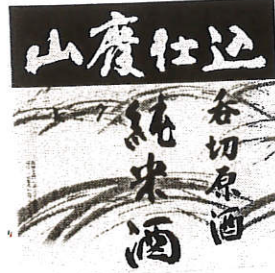 山廃仕込
呑切原酒
純米酒